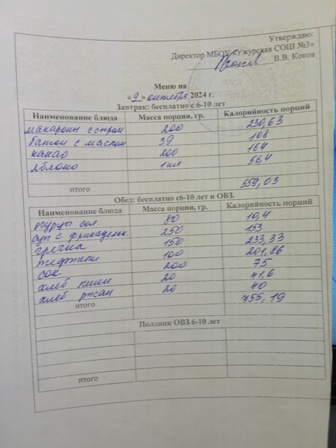 Утверждаю:
Директор МБОУ «Ужурская СОШ №3»
В.В. Коков
Меню на
«9» октября 2024 г.
Завтрак: бесплатно с 6-10 лет
Наименование блюда Масса порции, гр. Калорийность порций
макароны с сыром 200 230,63
батон с маслом 39 108
какао 200 164
яблоко 1 шт 56,4
итого 559,03
Обед: бесплатно с6-10 лет и ОВЗ.
Наименование блюда Масса порции, гр. Калорийность порций
огурцы сол. 80 10,4
суп с фрикадельк. 250 153
гречка 150 233,33
тефтели 100 201,86
сок 200 75
хлеб пшен 20 41,6
хлеб ржан 20 40
итого 755,19
Полдник ОВЗ 6-10 лет
итого